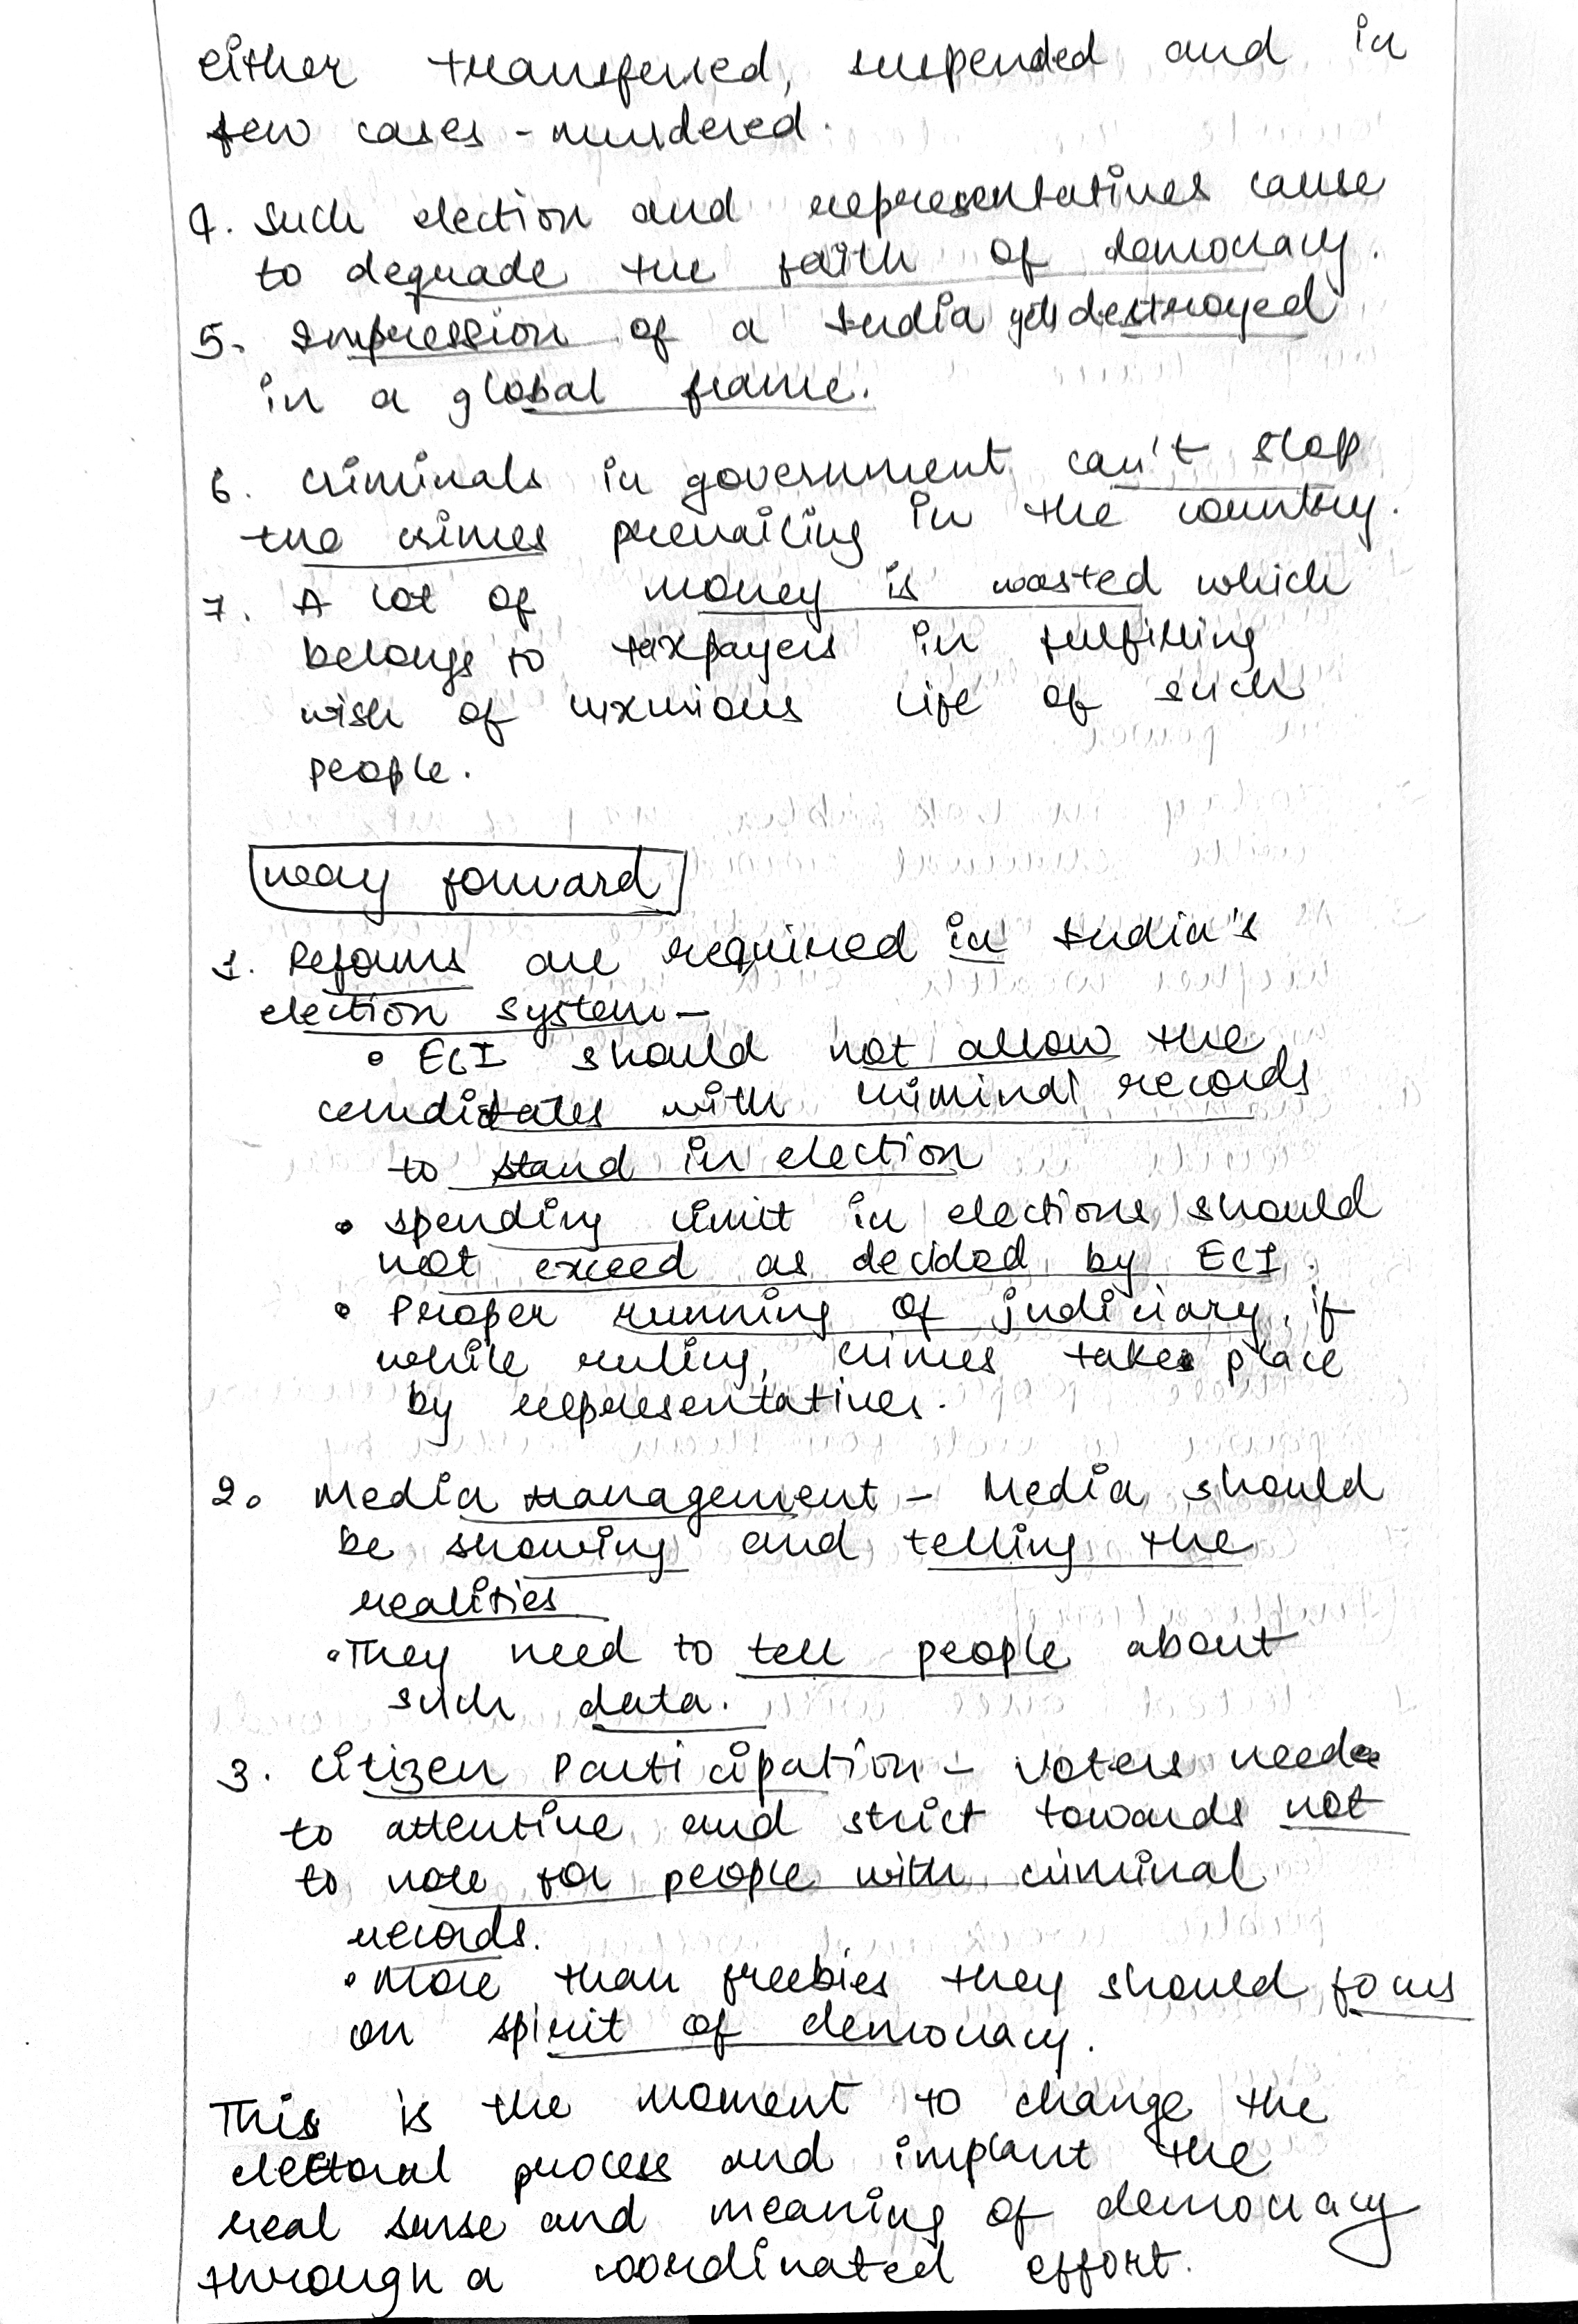 either transferred, suspended and in
few cases - murdered.
4. Such election and representatives cause
to degrade the faith of democracy.
5. Impression of a India gets destroyed
in a global frame.
6. Criminals in government can't stop
the crimes prevailing in the country.
7. A lot of money is wasted which
belongs to taxpayers in fulfilling
wish of luxurious life of such
people.
Way forward
1. Reforms are required in India's
election system -
• ECI should not allow the
candidates with criminal records
to stand in election
• spending limit in elections should
not exceed as decided by ECI.
• Proper running of judiciary, if
while ruling, crimes takes place
by representatives.
2. Media management - Media should
be showing and telling the
realities
• They need to tell people about
such data.
3. Citizen Participation - Voters needs
to attentive and strict towards not
to vote for people with criminal
records.
• More than freebies they should focus
on spirit of democracy.
This is the moment to change the
electoral process and implant the
real sense and meaning of democracy
through a coordinated effort.